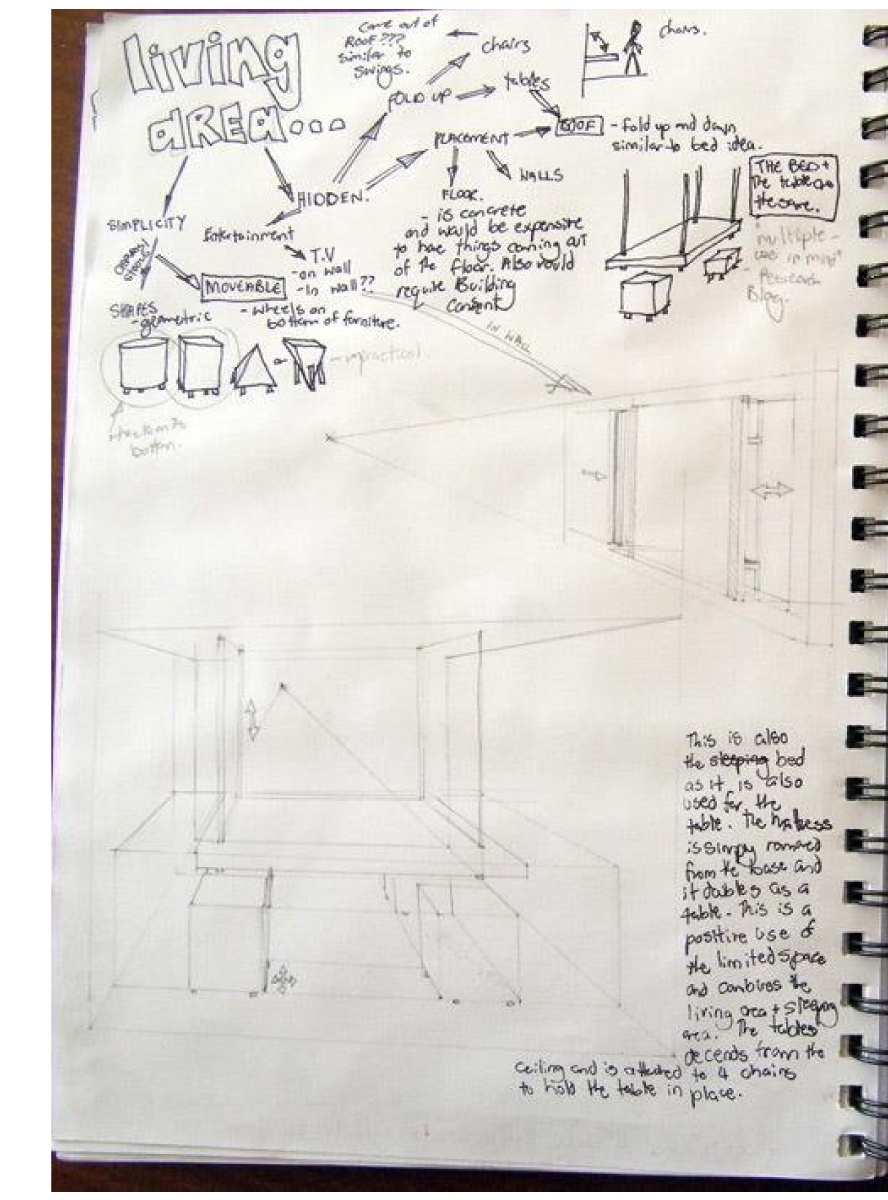 living
area...
come out of
ROOF???
similar to
swings.
chairs
chairs.
FOLD UP
tables
PLACEMENT
ROOF
- fold up and down
similar to bed idea.
WALLS
HIDDEN.
FLOOR.
- is concrete
and would be expensive
to have things coming out
of the floor. Also would
require Building
Consent
THE BED +
The table are
the same.
multiple -
use in mind
- Research
Blog.
SIMPLICITY
Entertainment
T.V
- on wall
- In wall??
MOVEABLE
- wheels on
bottom of furniture.
SHAPES
- geometric
- impractical.
bottom.
IN WALL
This is also
the sleeping bed
as it is also
used for the
table. The matress
is simply removed
from the base and
it doubles as a
table. This is a
positive use of
the limited space
and combines the
living area + sleeping
area. The tables
decends from the
ceiling and is attached to 4 chains
to hold the table in place.